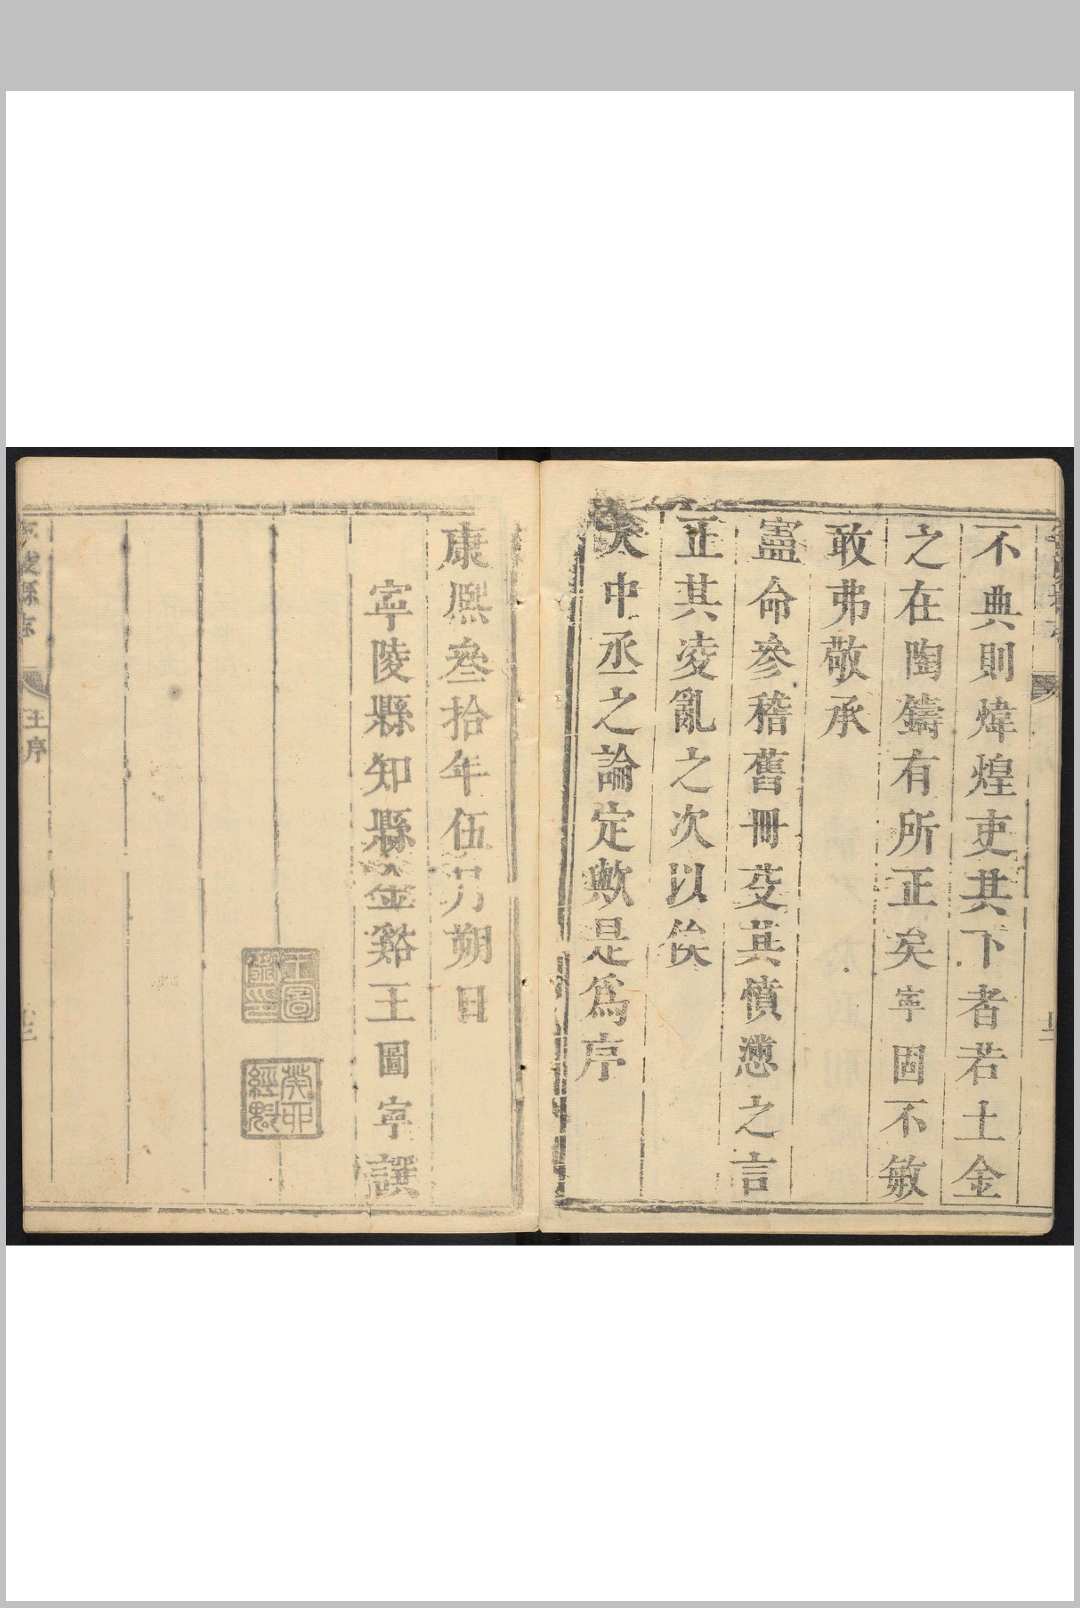 不典則煒煌吏其下者若土金
之在陶鑄有所正矣寧固不敏
敢弗敬承
憲命參稽舊冊芟其憤懣之言
正其凌亂之次以俟
大中丞之論定歟是爲序
康熙叁拾年伍月朔日
寧陵縣知縣金谿王圖寧譔
王圖寧印
縣志
王序